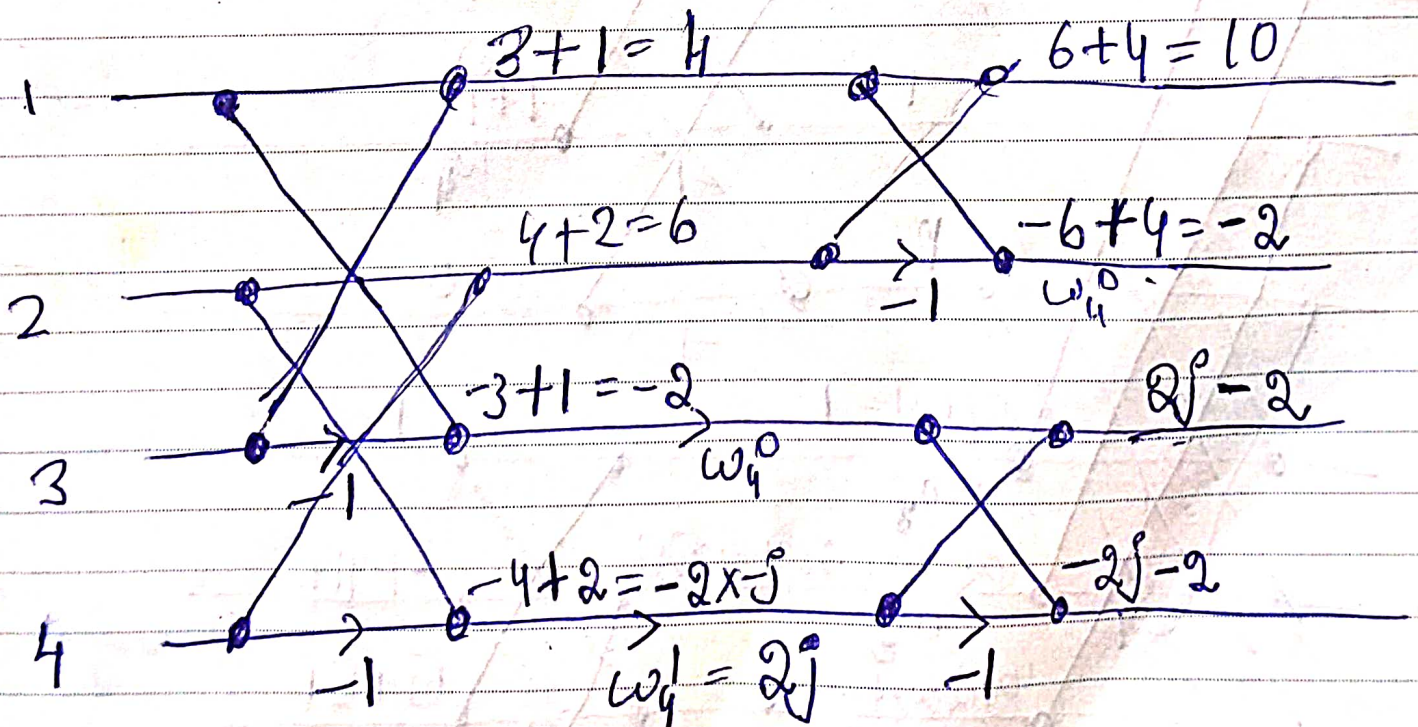 1 3+1=4 6+4=10
4+2=6 -6+4=-2
2 -1 ω₄⁰
-3+1=-2 2j-2
3 -1 ω₄⁰
-4+2=-2x-j -2j-2
4 -1 ω₄¹=2j -1